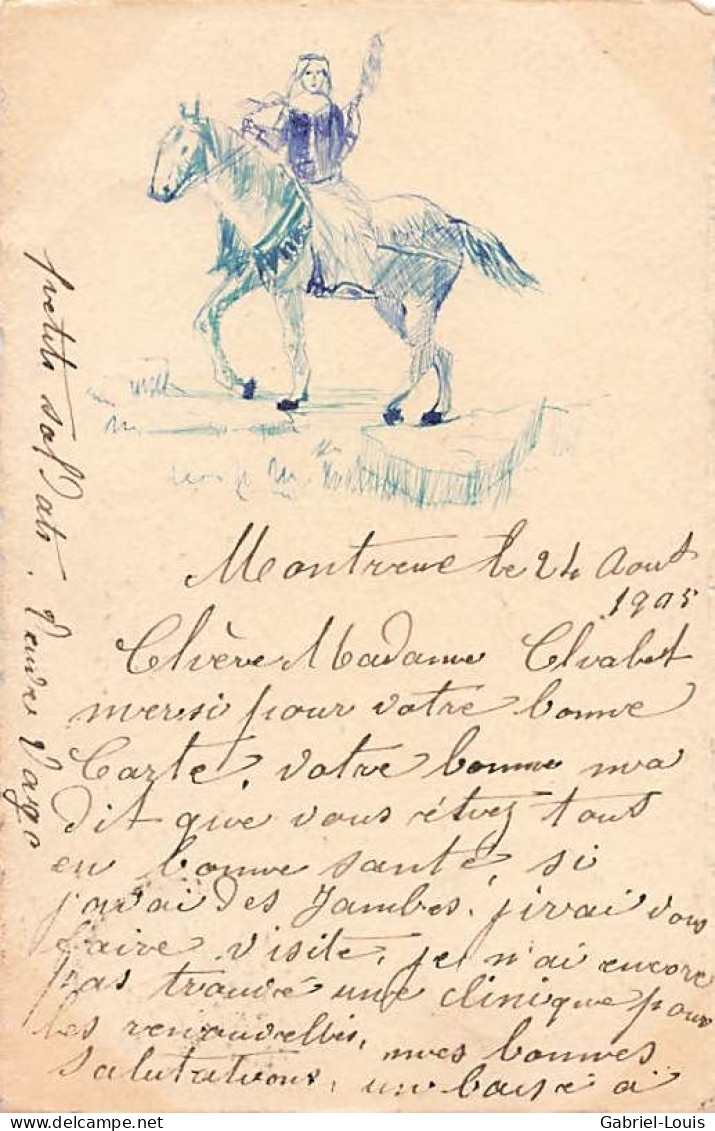 Montreux le 24 Aout
1905
Chère Madame Chabot
mersi pour votre bonne
Carte, votre bonne ma
dit que vous étvez tout
en bonne santé, si
j'avai des Jambes, j'irai vous
faire visite, je n'ai encore
pas trouvé une clinique pour
les renouvellés, mes bonnes
salutations, un baisé à
petits soldats.
Gabriel-Louis